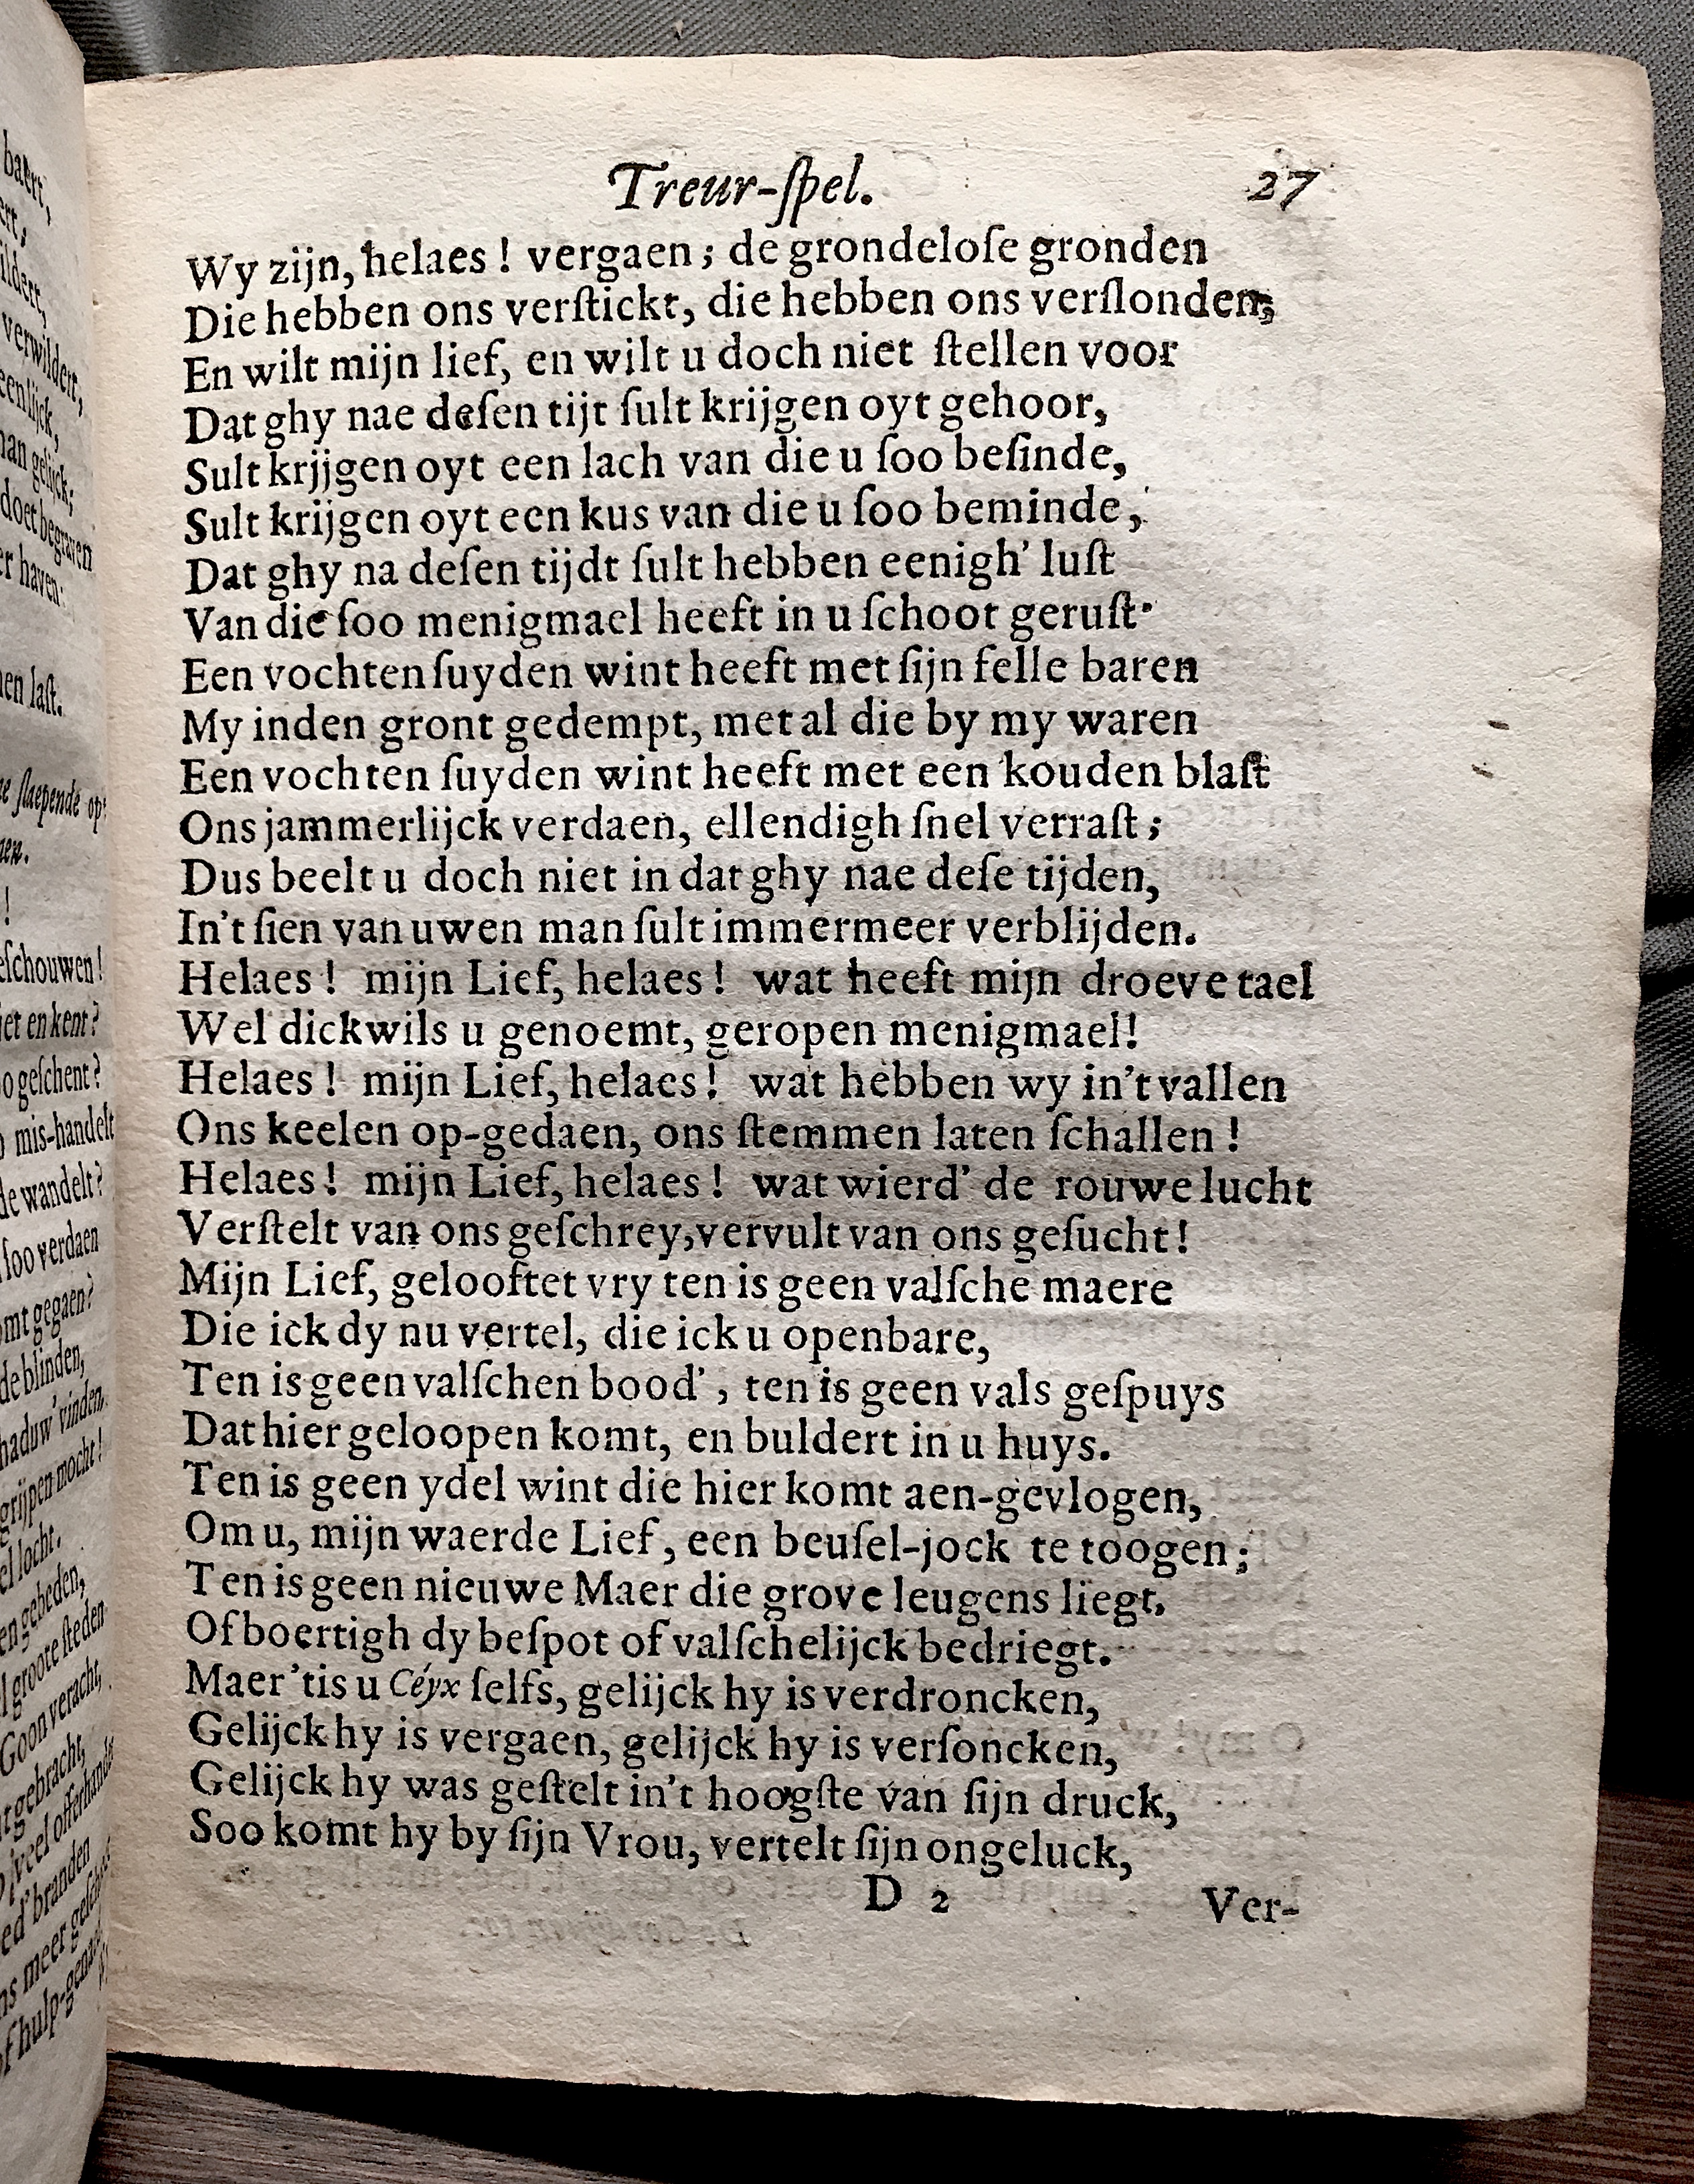 baert,
verwildert,
man gelijck;
doet begraven
haven:
laſt.
ſlaepende op
!
eſchouwen!
en kent?
geſchent?
mis-handelt
wandelt?
ſoo verdaen
gegaen?
de blinden,
vinden,
grijpen mocht!
locht.
gebeden,
groote ſteden
Goon veracht,
gebracht,
veel offerhande
branden
meer
hulp-
Treur-ſpel. 27
Wy zijn, helaes! vergaen; de grondeloſe gronden
Die hebben ons verſtickt, die hebben ons verſlonden;
En wilt mijn lief, en wilt u doch niet ſtellen voor
Dat ghy nae deſen tijt ſult krijgen oyt gehoor,
Sult krijgen oyt een lach van die u ſoo beſinde,
Sult krijgen oyt een kus van die u ſoo beminde,
Dat ghy na deſen tijdt ſult hebben eenigh' luſt
Van die ſoo menigmael heeft in u ſchoot geruſt.
Een vochten ſuyden wint heeft met ſijn felle baren
My inden gront gedempt, met al die by my waren
Een vochten ſuyden wint heeft met een kouden blaſt
Ons jammerlijck verdaen, ellendigh ſnel verraſt;
Dus beelt u doch niet in dat ghy nae deſe tijden,
In't ſien van uwen man ſult immermeer verblijden.
Helaes! mijn Lief, helaes! wat heeft mijn droeve tael
Wel dickwils u genoemt, geropen menigmael!
Helaes! mijn Lief, helaes! wat hebben wy in't vallen
Ons keelen op-gedaen, ons ſtemmen laten ſchallen!
Helaes! mijn Lief, helaes! wat wierd' de rouwe lucht
Verſtelt van ons geſchrey, vervult van ons geſucht!
Mijn Lief, gelooftet vry ten is geen valſche maere
Die ick dy nu vertel, die ick u openbare,
Ten is geen valſchen bood', ten is geen vals geſpuys
Dat hier geloopen komt, en buldert in u huys.
Ten is geen ydel wint die hier komt aen-gevlogen,
Om u, mijn waerde Lief, een beuſel-jock te toogen;
Ten is geen nieuwe Maer die grove leugens liegt,
Of boertigh dy beſpot of valſchelijck bedriegt.
Maer 'tis u Céyx ſelfs, gelijck hy is verdroncken,
Gelijck hy is vergaen, gelijck hy is verſoncken,
Gelijck hy was geſtelt in't hoogſte van ſijn druck,
Soo komt hy by ſijn Vrou, vertelt ſijn ongeluck,
D 2 Ver-